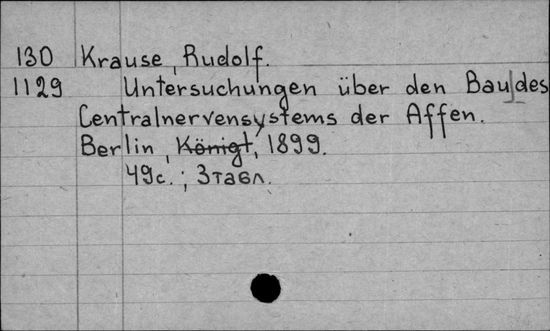 130 Krause, Rudolf.
1129 Untersuchungen über den Bau des
Centralnervensystems der Affen.
Berlin, Königt, 1899.
49c.; 3табл.